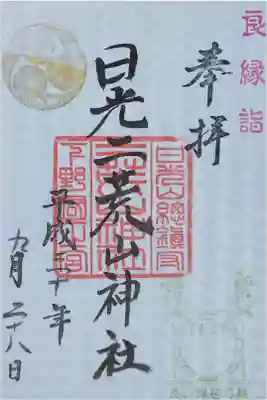 良縁詣
奉拝
日光二荒山神社
平成三十年
九月二十八日
日光山總鎮守
下野國一之宮